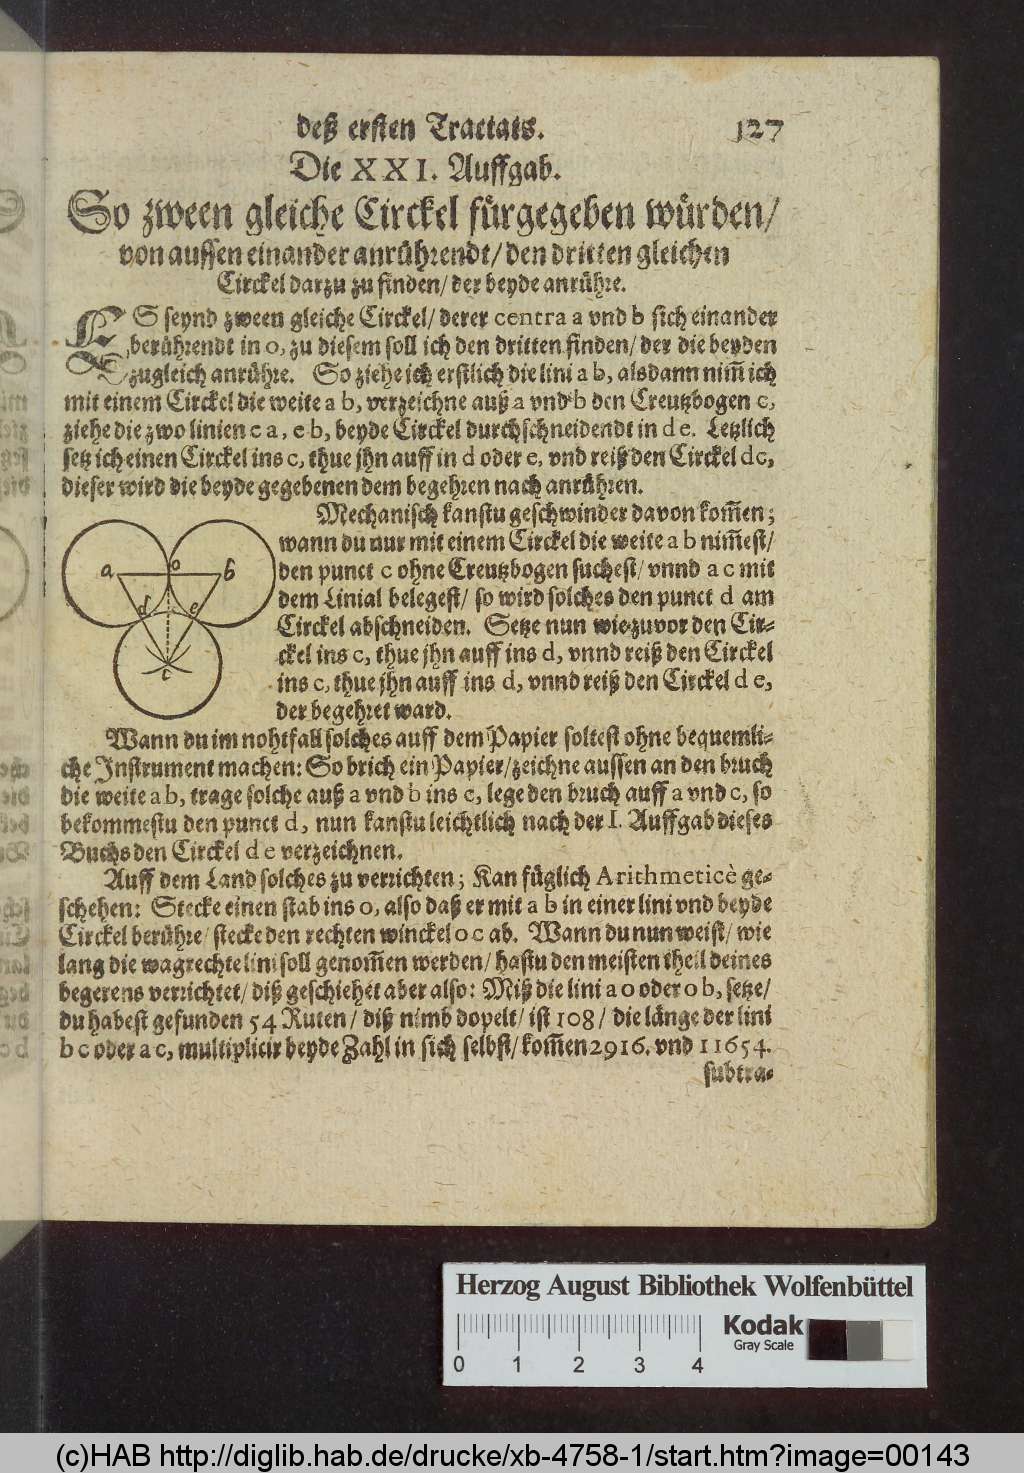 deß ersten Tractats. 127
Die XXI. Auffgab.
So zween gleiche Circkel fürgegeben würden/
von aussen einander anrührendt/ den dritten gleichen
Circkel darzu zu finden/ der beyde anrühre.
ES seynd zween gleiche Circkel/ derer centra a vnd b sich einander
berührendt in o, zu diesem soll ich den dritten finden/ der die beyden
zugleich anrühre. So ziehe ich erstlich die lini a b, alsdann nim̃ ich
mit einem Circkel die weite a b, verzeichne auß a vnd b den Creutzbogen c,
ziehe die zwo linien c a, c b, beyde Circkel durchschneidendt in d e. Letzlich
setz ich einen Circkel ins c, thue jhn auff in d oder e, vnd reiß den Circkel dc,
dieser wird die beyde gegebenen dem begehren nach anrühren.
Mechanisch kanstu geschwinder davon kom̃en;
wann du nur mit einem Circkel die weite a b nim̃est/
den punct c ohne Creutzbogen suchest/ vnnd a c mit
dem Linial belegest/ so wird solches den punct d am
Circkel abschneiden. Setze nun wie zuvor den Cir-
ckel ins c, thue jhn auff ins d, vnnd reiß den Circkel
ins c, thue jhn auff ins d, vnnd reiß den Circkel d e,
der begehret ward.
a o b
d e
c
Wann du im nohtfall solches auff dem Papier soltest ohne bequemli-
che Instrument machen: So brich ein Papier/ zeichne aussen an den bruch
die weite a b, trage solche auß a vnd b ins c, lege den bruch auff a vnd c, so
bekommestu den punct d, nun kanstu leichtlich nach der I. Auffgab dieses
Buchs den Circkel d e verzeichnen.
Auff dem Land solches zu verrichten; Kan füglich Arithmeticè ge-
schehen: Stecke einen stab ins o, also daß er mit a b in einer lini vnd beyde
Circkel berühre/ stecke den rechten winckel o c ab. Wann du nun weist/ wie
lang die wagrechte lini soll genom̃en werden/ hastu den meisten theil deines
begerens verrichtet/ diß geschiehet aber also: Miß die lini a o oder o b, setze/
du habest gefunden 54 Ruten/ diß nimb dopelt/ ist 108/ die länge der lini
b c oder a c, multiplicir beyde Zahl in sich selbst/ kom̃en 2916. vnd 11654.
subtra-
Herzog August Bibliothek Wolfenbüttel
0 1 2 3 4
Kodak
Gray Scale
(c)HAB http://diglib.hab.de/drucke/xb-4758-1/start.htm?image=00143